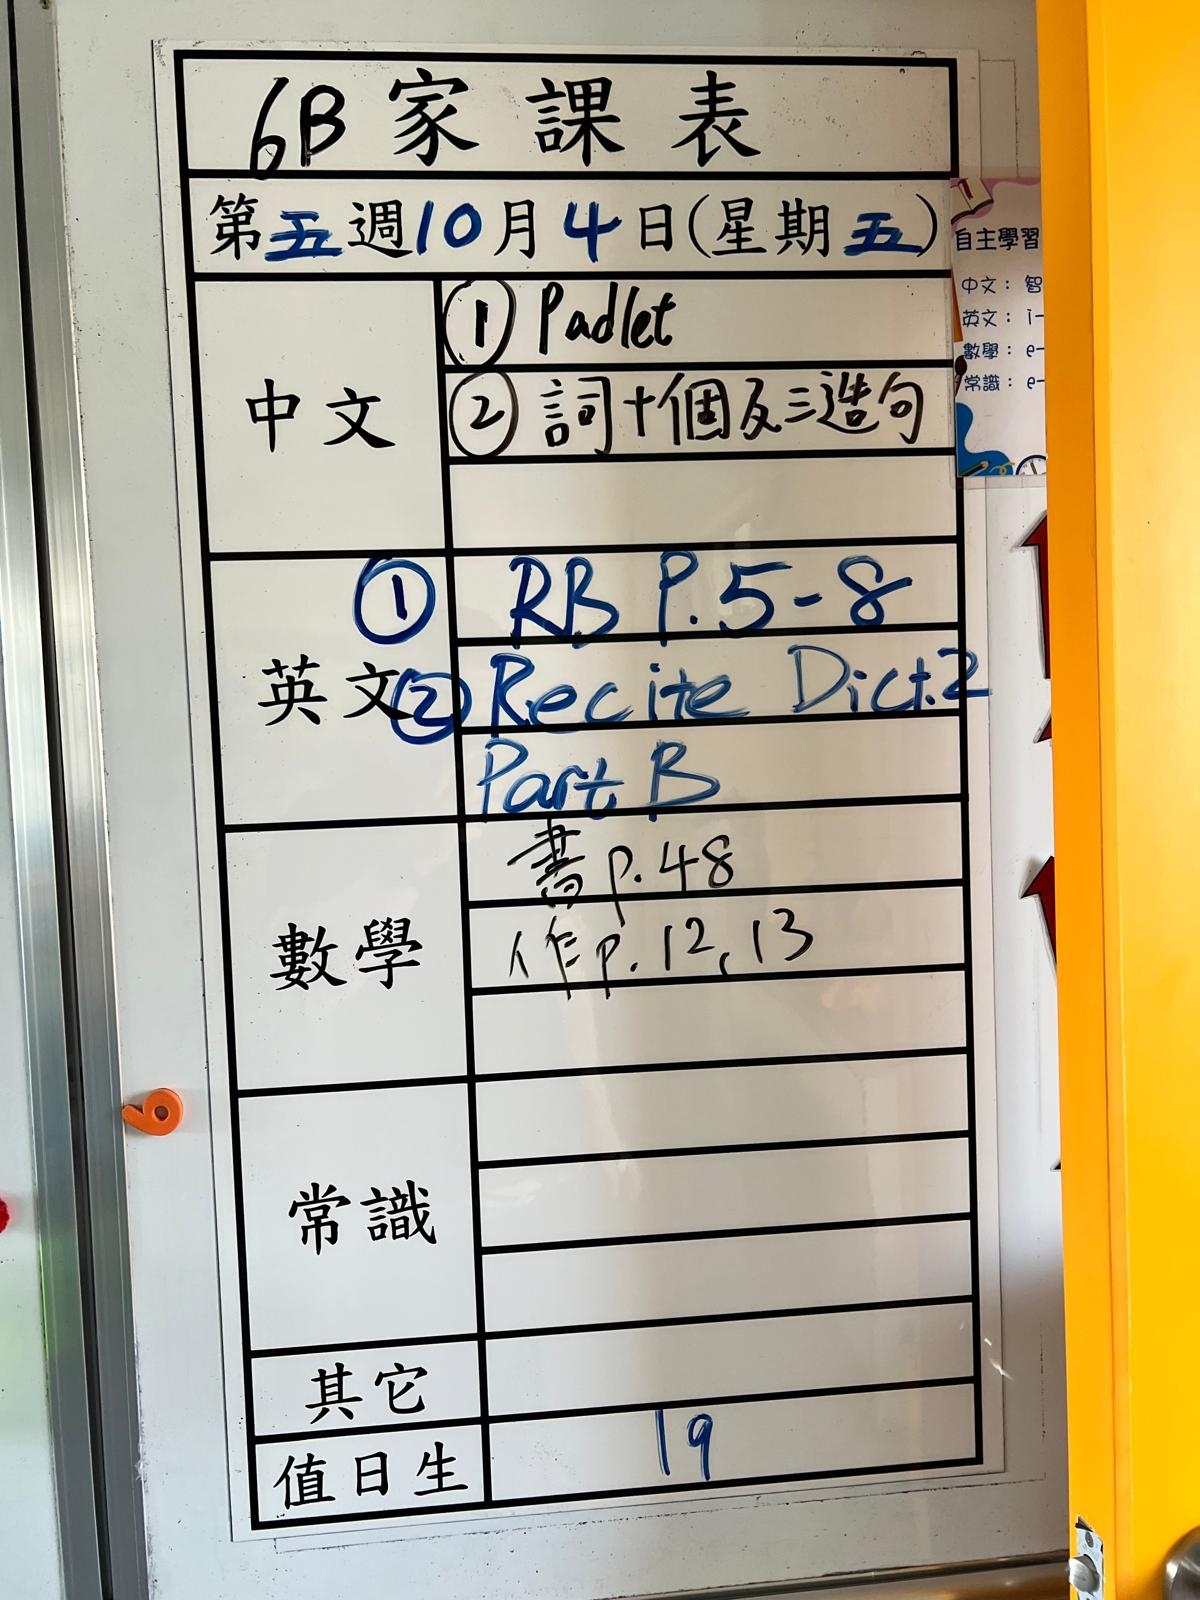 6B 家課表
第五週10月4日(星期五)
中文
① Padlet
② 詞十個及三造句
英文
① RB P.5-8
② Recite Dict.2
Part B
數學
書 p.48
作 p.12,13
常識
其它
值日生
19
自主學習
中文：智
英文：i-
數學：e-
常識：e-
6